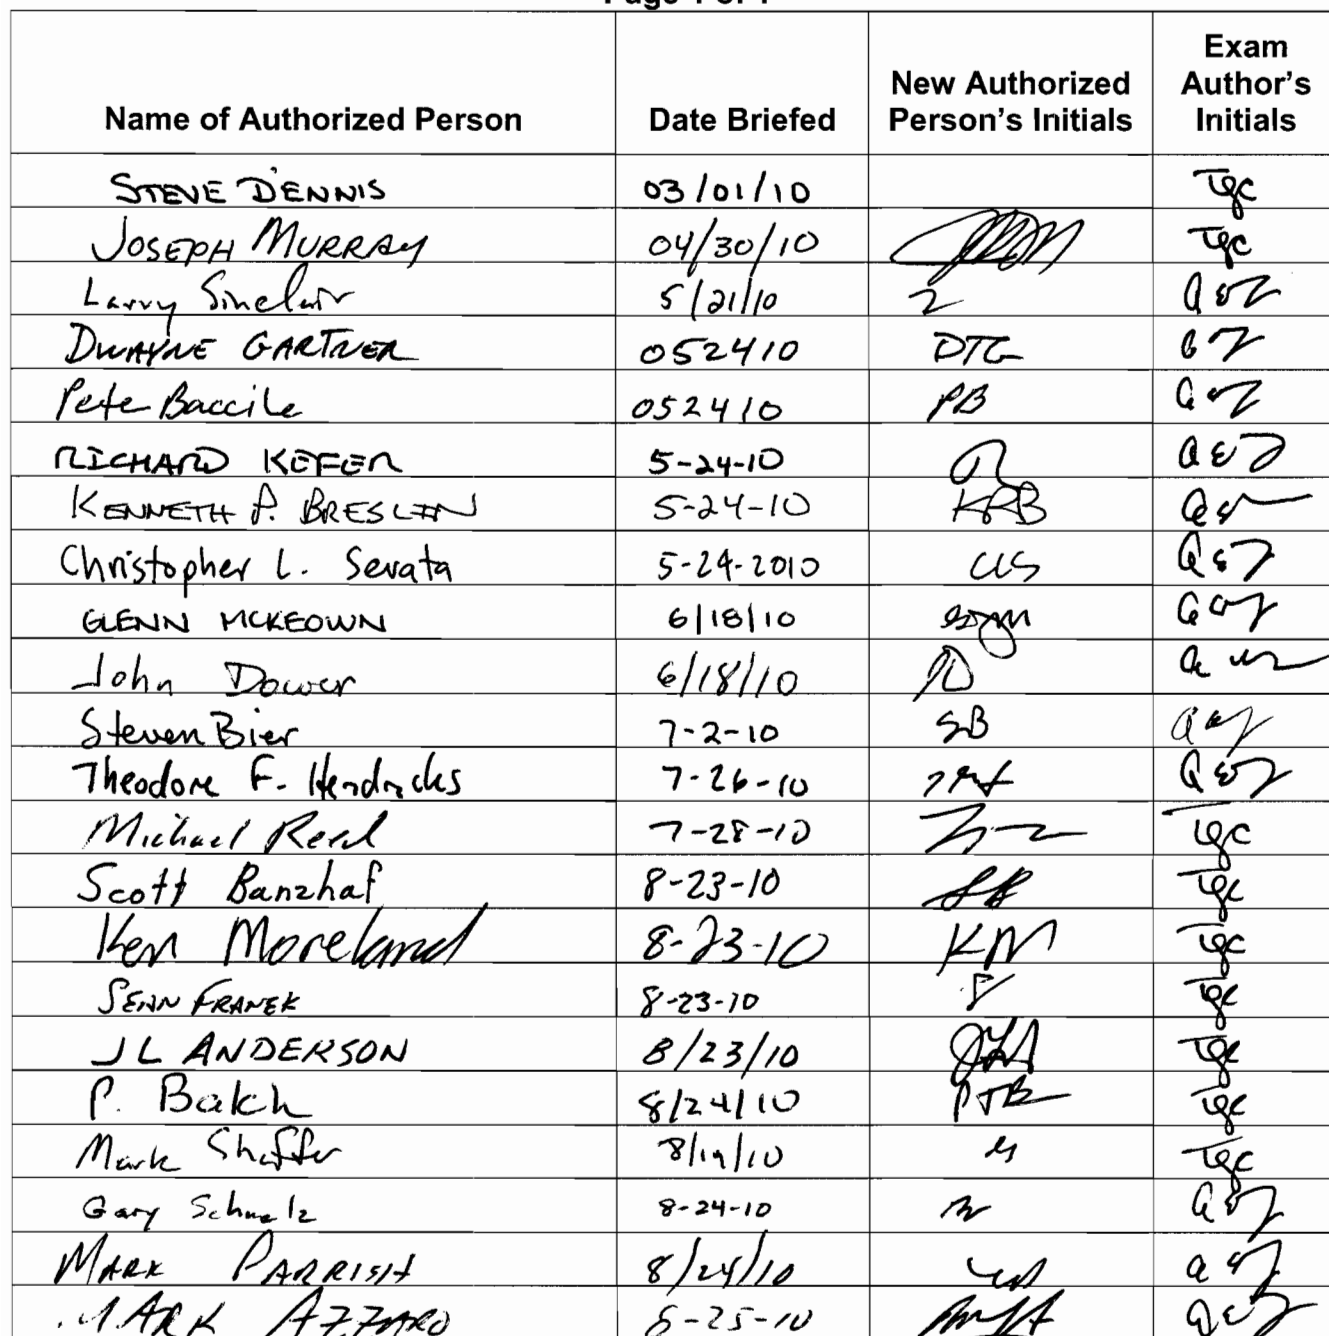 Page 1 of 1
Name of Authorized Person Date Briefed New Authorized Person's Initials Exam Author's Initials
STEVE DENNIS 03/01/10 Tgc
JOSEPH MURRAY 04/30/10 Tgc
Larry Sinclair 5/21/10
DWAYNE GARTNER 052410 DTG
Pete Baccile 052410 PB
RICHARD KEFER 5-24-10
KENNETH P. BRESLIN 5-24-10 KPB
Christopher L. Serata 5-24-2010 CLS
GLENN MCKEOWN 6/18/10
John Dower 6/18/10 JD
Steven Bier 7-2-10 SB
Theodore F. Hendricks 7-26-10
Michael Reed 7-28-10 Tgc
Scott Banzhaf 8-23-10 SB Tgc
Ken Moreland 8-23-10 KM Tgc
SEAN FRANEK 8-23-10 Tgc
JL ANDERSON 8/23/10 JLA Tgc
P. Balch 8/24/10 PTB Tgc
Mark Shaffer 8/19/10 Tgc
Gary Schmelz 8-24-10
MARK PARRISH 8/24/10
MARK AZZARO 8-25-10